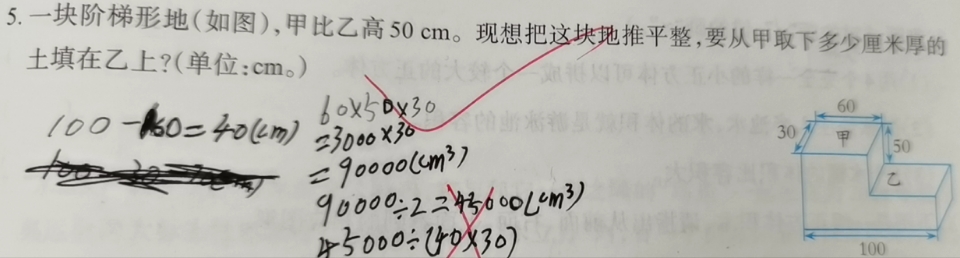 5. 一块阶梯形地(如图),甲比乙高50 cm。现想把这块地推平整,要从甲取下多少厘米厚的
土填在乙上?(单位:cm。)
100-60=40(cm)
60×50×30
=3000×30
=90000(cm³)
90000÷2=45000(cm³)
45000÷(40×30)
60
30
甲
50
乙
100